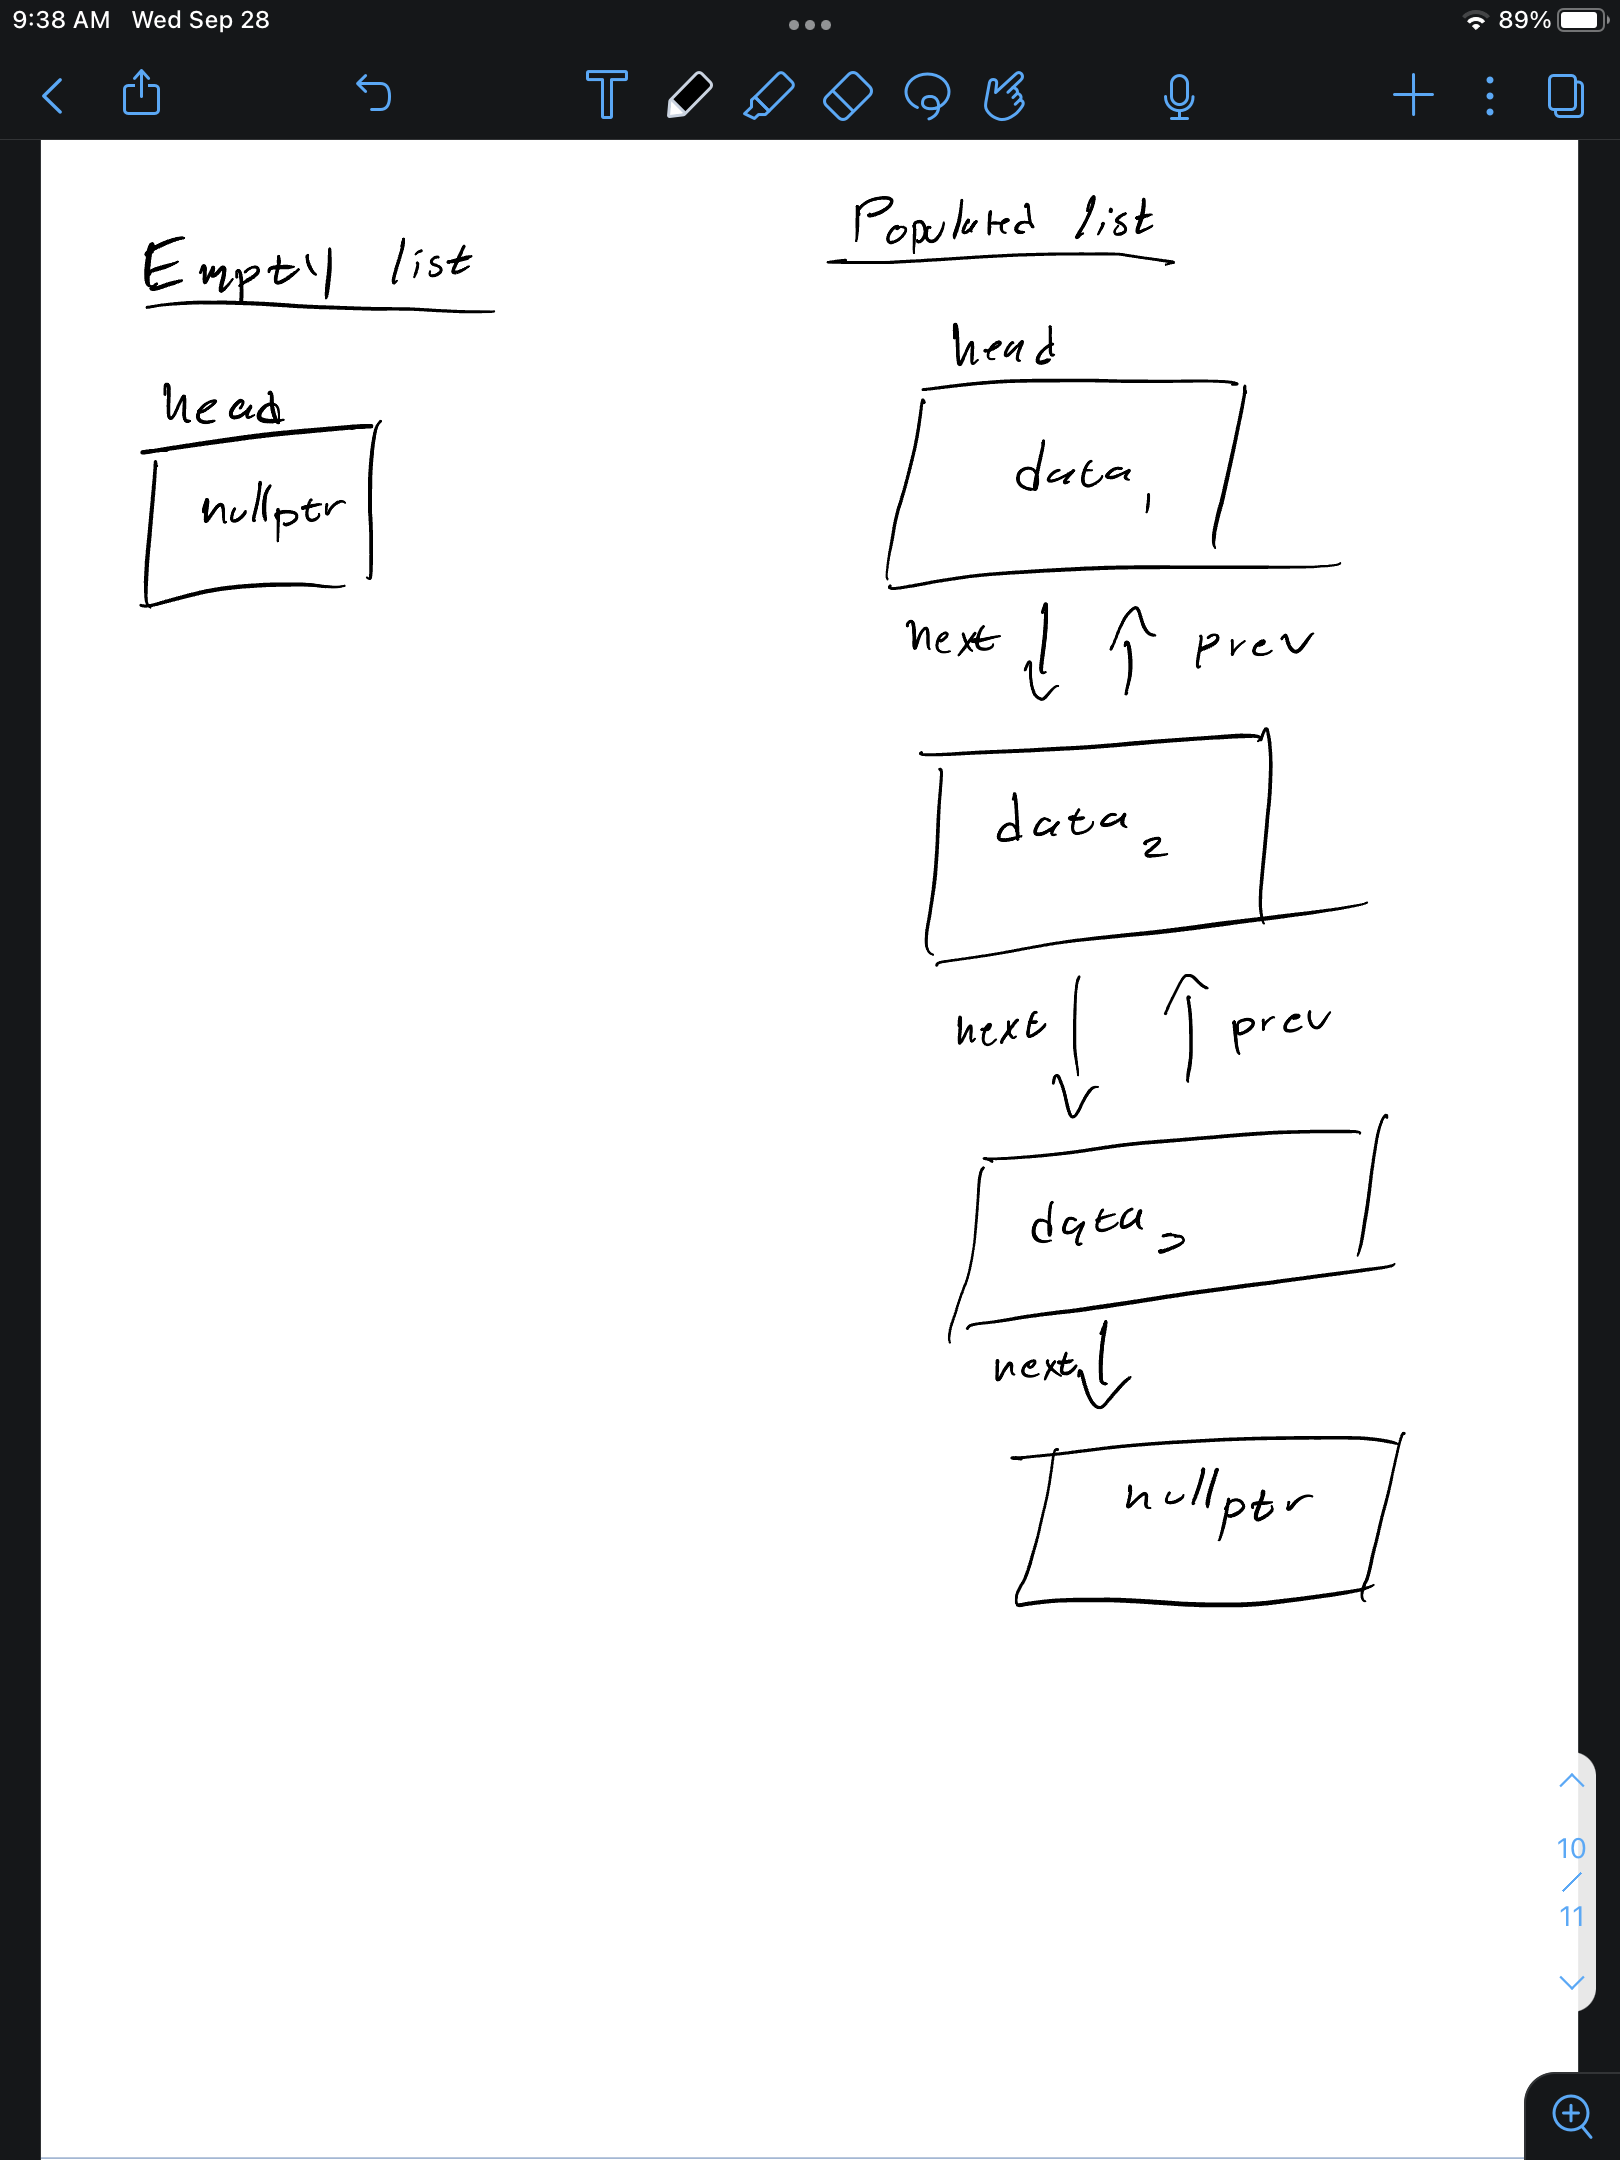 9:38 AM Wed Sep 28
89%
Empty list
head
nullptr
Populated list
head
data1
next prev
data2
next prev
data3
next
nullptr
10
/
11